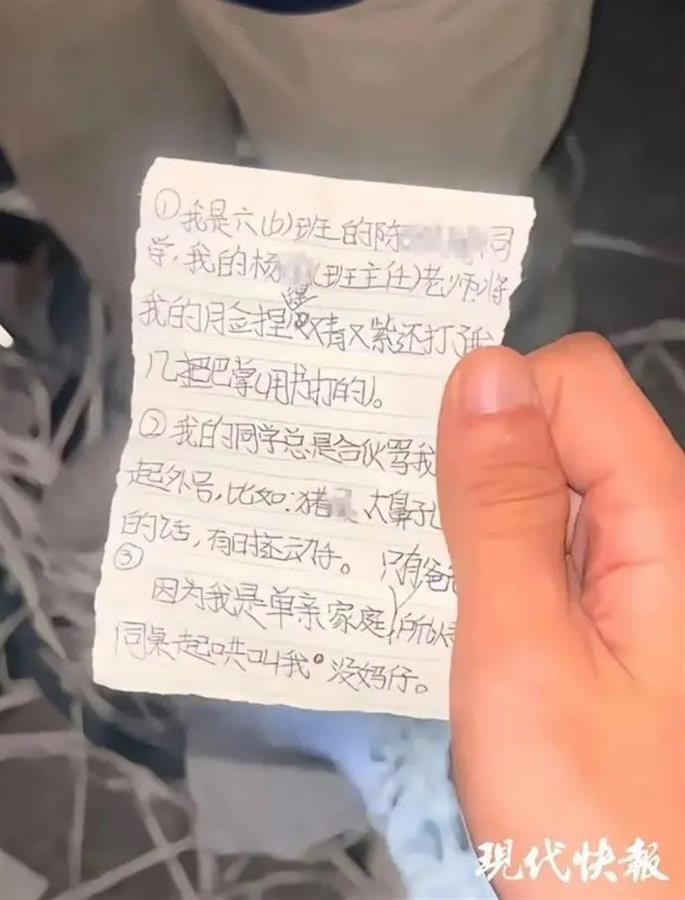 ①我是六(6)班的陈 同
学,我的杨 (班主任)老师将
我的脸捏 又青又紫还打了我
几把巴掌(用书打的)。
②我的同学总是合伙骂我
起外号,比如:猪 大鼻孔
的话,有时还动手。
③ 只有爸爸
因为我是单亲家庭,所以
同桌起哄叫我"没妈仔。
现代快报